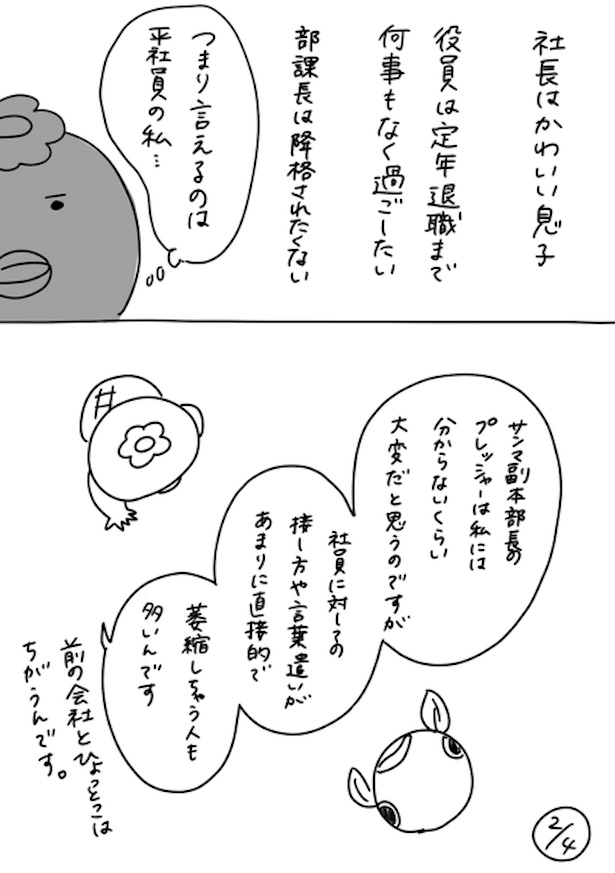 社長はかわいい息子
役員は定年退職まで
何事もなく過ごしたい
部課長は降格されたくない
つまり言えるのは
平社員の私…
サンマ副本部長の
プレッシャーは私には
分からないくらい
大変だと思うのですが
社員に対しての
接し方や言葉遣いが
あまりに直接的で
萎縮しちゃう人も
多いんです
前の会社とひょっとこは
ちがうんです。
2/4